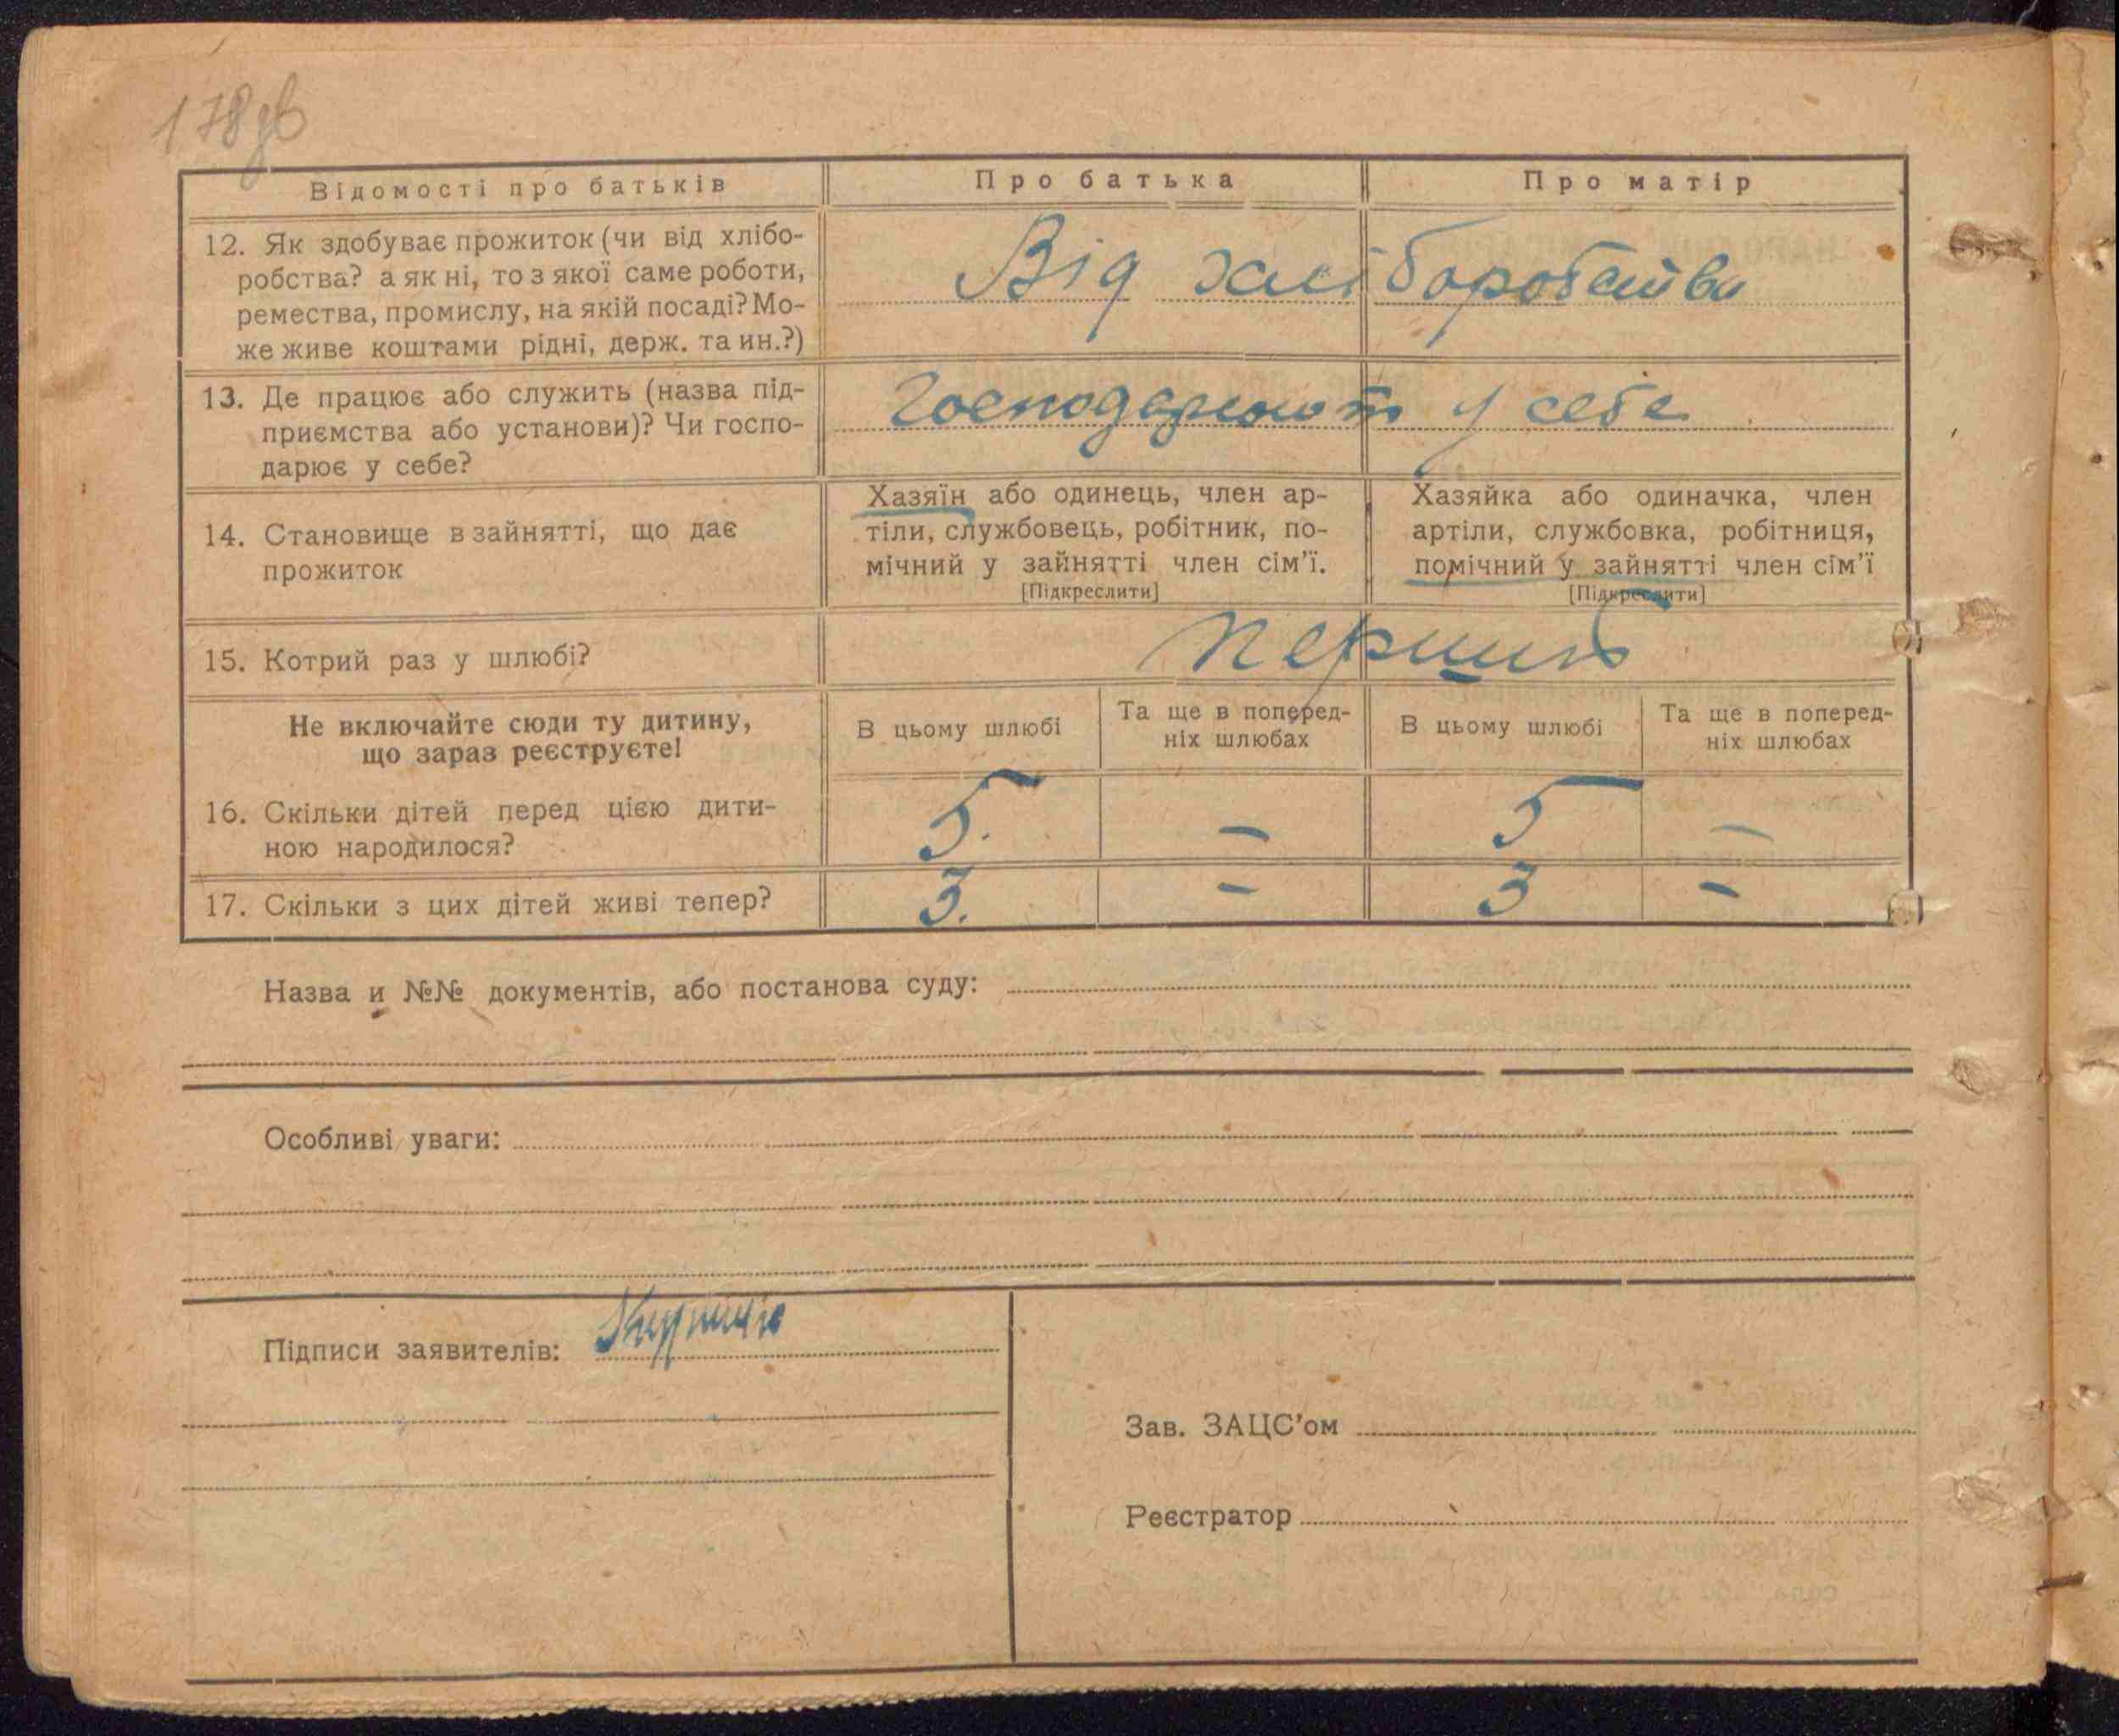 178зв
Відомості про батьків Про батька Про матір
12. Як здобуває прожиток (чи від хлібо-
робства? а як ні, то з якої саме роботи,
ремества, промислу, на якій посаді? Мо-
же живе коштами рідні, держ. та ин.?)
Від хліборобства
13. Де працює або служить (назва під-
приємства або установи)? Чи госпо-
дарює у себе?
Господарюють у себе
14. Становище в зайнятті, що дає
прожиток
Хазяїн або одинець, член ар-
тіли, службовець, робітник, по-
мічний у зайнятті член сім'ї.
[Підкреслити]
Хазяйка або одиначка, член
артіли, службовка, робітниця,
помічний у зайнятті член сім'ї
[Підкреслити]
15. Котрий раз у шлюбі?
Перший
Не включайте сюди ту дитину,
що зараз реєструєте!
В цьому шлюбі
Та ще в поперед-
ніх шлюбах
В цьому шлюбі
Та ще в поперед-
ніх шлюбах
16. Скільки дітей перед цією дити-
ною народилося?
5. – 5 –
17. Скільки з цих дітей живі тепер? 3. – 3 –
Назва и №№ документів, або постанова суду:
Особливі уваги:
Підписи заявителів:
Зав. ЗАЦС'ом
Реєстратор